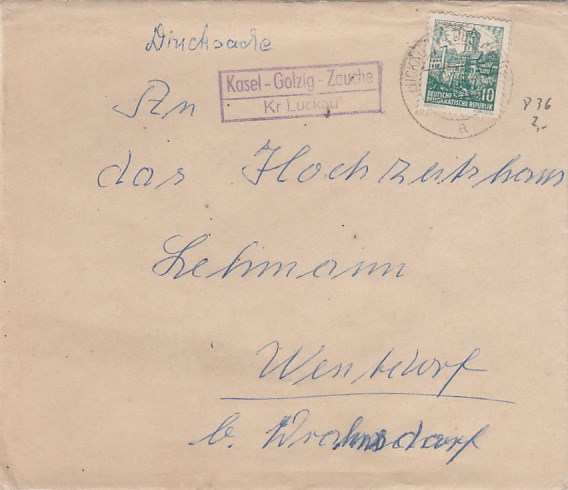 Drucksache
Kasel-Golzig-Zauche
Kr Luckau
10
DEUTSCHE
DEMOKRATISCHE REPUBLIK
a
P36
2,-
An
das Hochzeitshaus
Lehmann
Wentdorf
b. Drahnsdorf